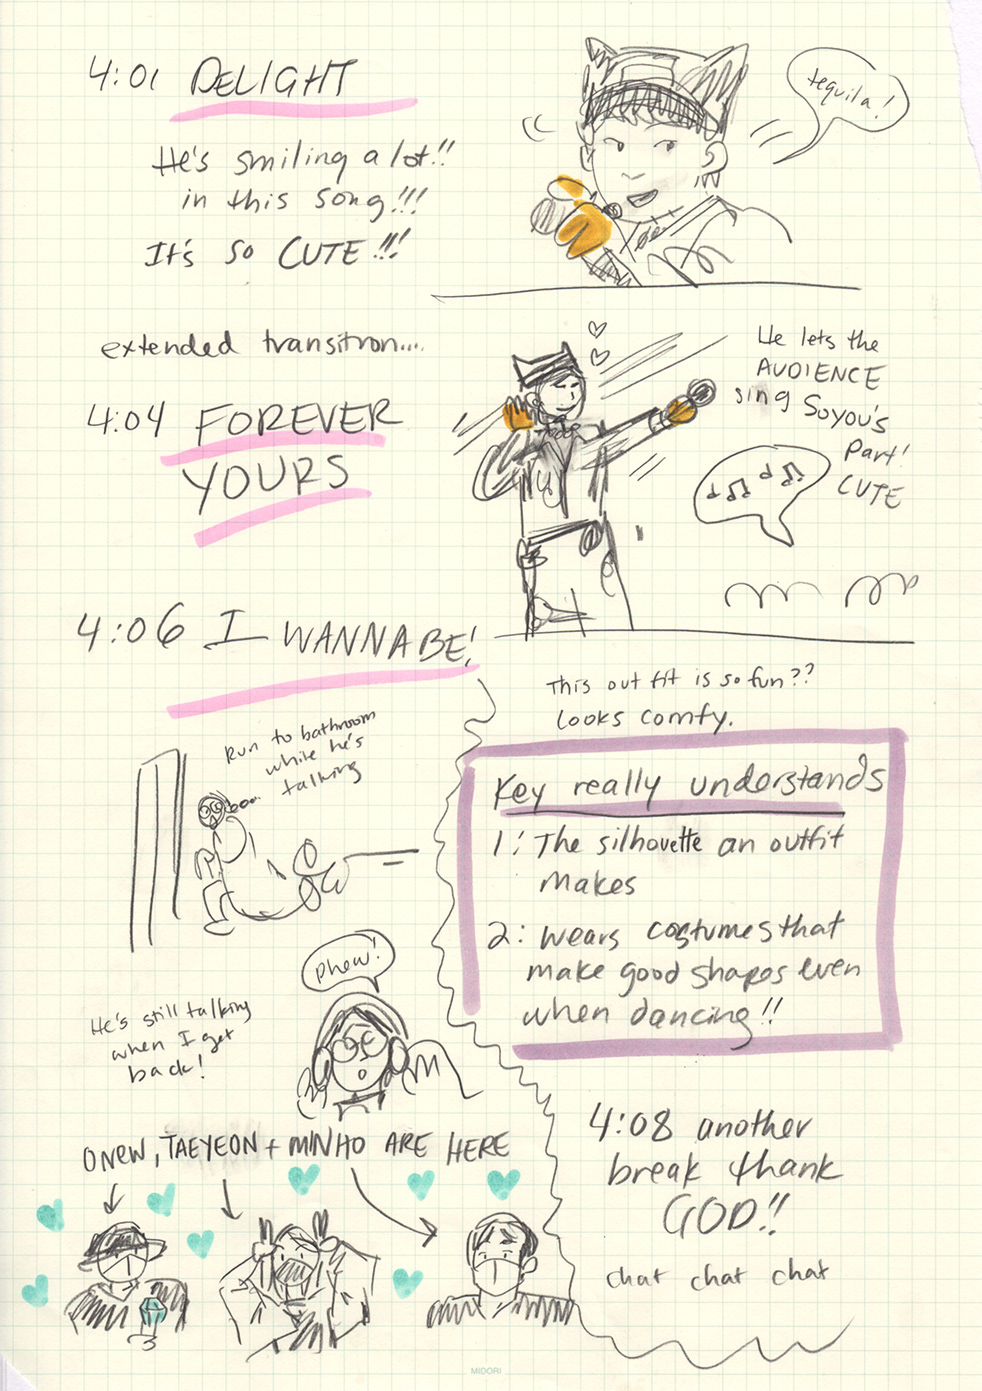 4:01 DELIGHT
tequila!
He's smiling a lot!!
in this song!!!
It's so CUTE!!!
extended transition....
He lets the
AUDIENCE
sing Soyou's
Part!
CUTE
4:04 FOREVER
YOURS
4:06 I WANNA BE!
This outfit is so fun??
Looks comfy.
Run to bathroom
while he's
talking
Key really understands
1: The silhouette an outfit
makes
2: Wears costumes that
make good shapes even
when dancing!!
phew!
He's still talking
when I get
back!
ONEW, TAEYEON + MINHO ARE HERE
4:08 another
break thank
GOD!!
chat chat chat
MIDORI